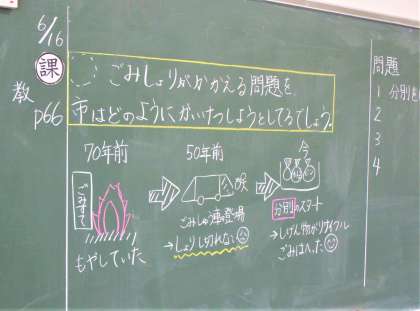 6/16
課
教
p66
ごみしょりがかかえる問題を
市はどのようにかいけつしようとしてるでしょう。
70年前
ごみすて
もやしていた
50年前
ごみしゅう車登場
→しょりし切れない
今
分別のスタート
→しげん物がリサイクル
ごみはへった
問題
1 分別
2
3
4